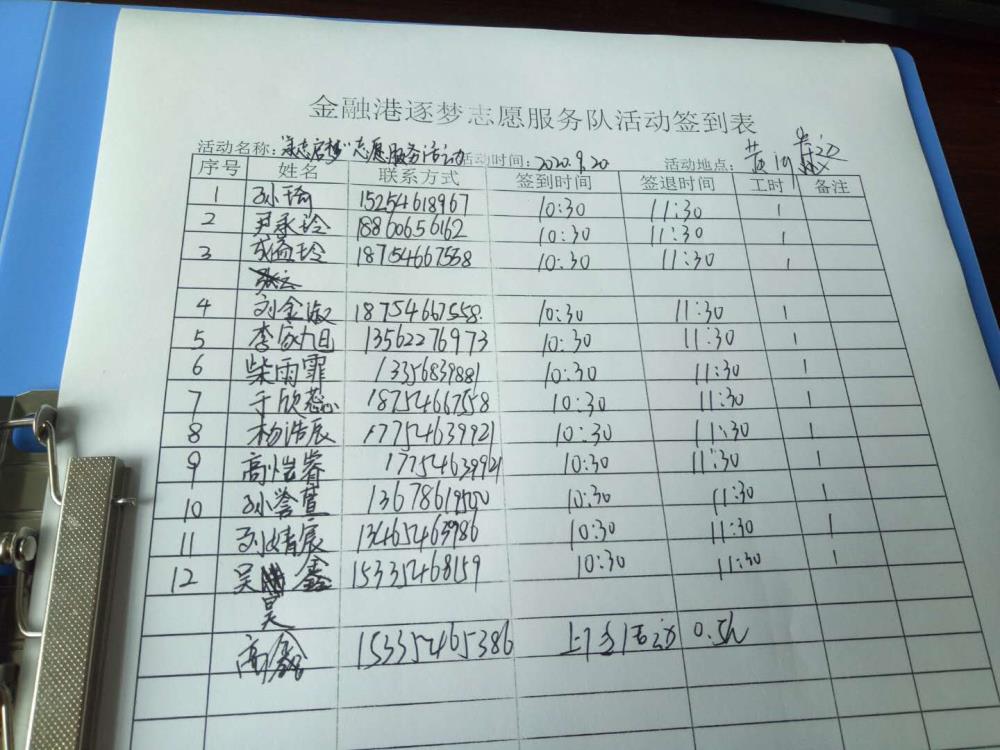 金融港逐梦志愿服务队活动签到表
活动名称: 启梦"志愿服务活动 活动时间: 2020.9.20 活动地点: 黄
序号 姓名 联系方式 签到时间 签退时间 工时 备注
1 孙琦 15254618967 10:30 11:30 1
2 尹承玲 18860656162 10:30 11:30 1
3 成孟玲 18754667558 10:30 11:30 1
4 刘金淑 18754667558 10:30 11:30 1
5 李 旭 13562276973 10:30 11:30 1
6 柴雨霏 13356839881 10:30 11:30 1
7 于欣蕊 18754667558 10:30 11:30 1
8 杨浩辰 17754639921 10:30 11:30 1
9 高恺睿 17754639921 10:30 11:30 1
10 孙誉萱 13678619500 10:30 11:30 1
11 刘婧宸 13465463986 10:30 11:30 1
12 吴 鑫 15335468159 10:30 11:30 1
昊
高鑫 15335465386 上次活动 0.5h